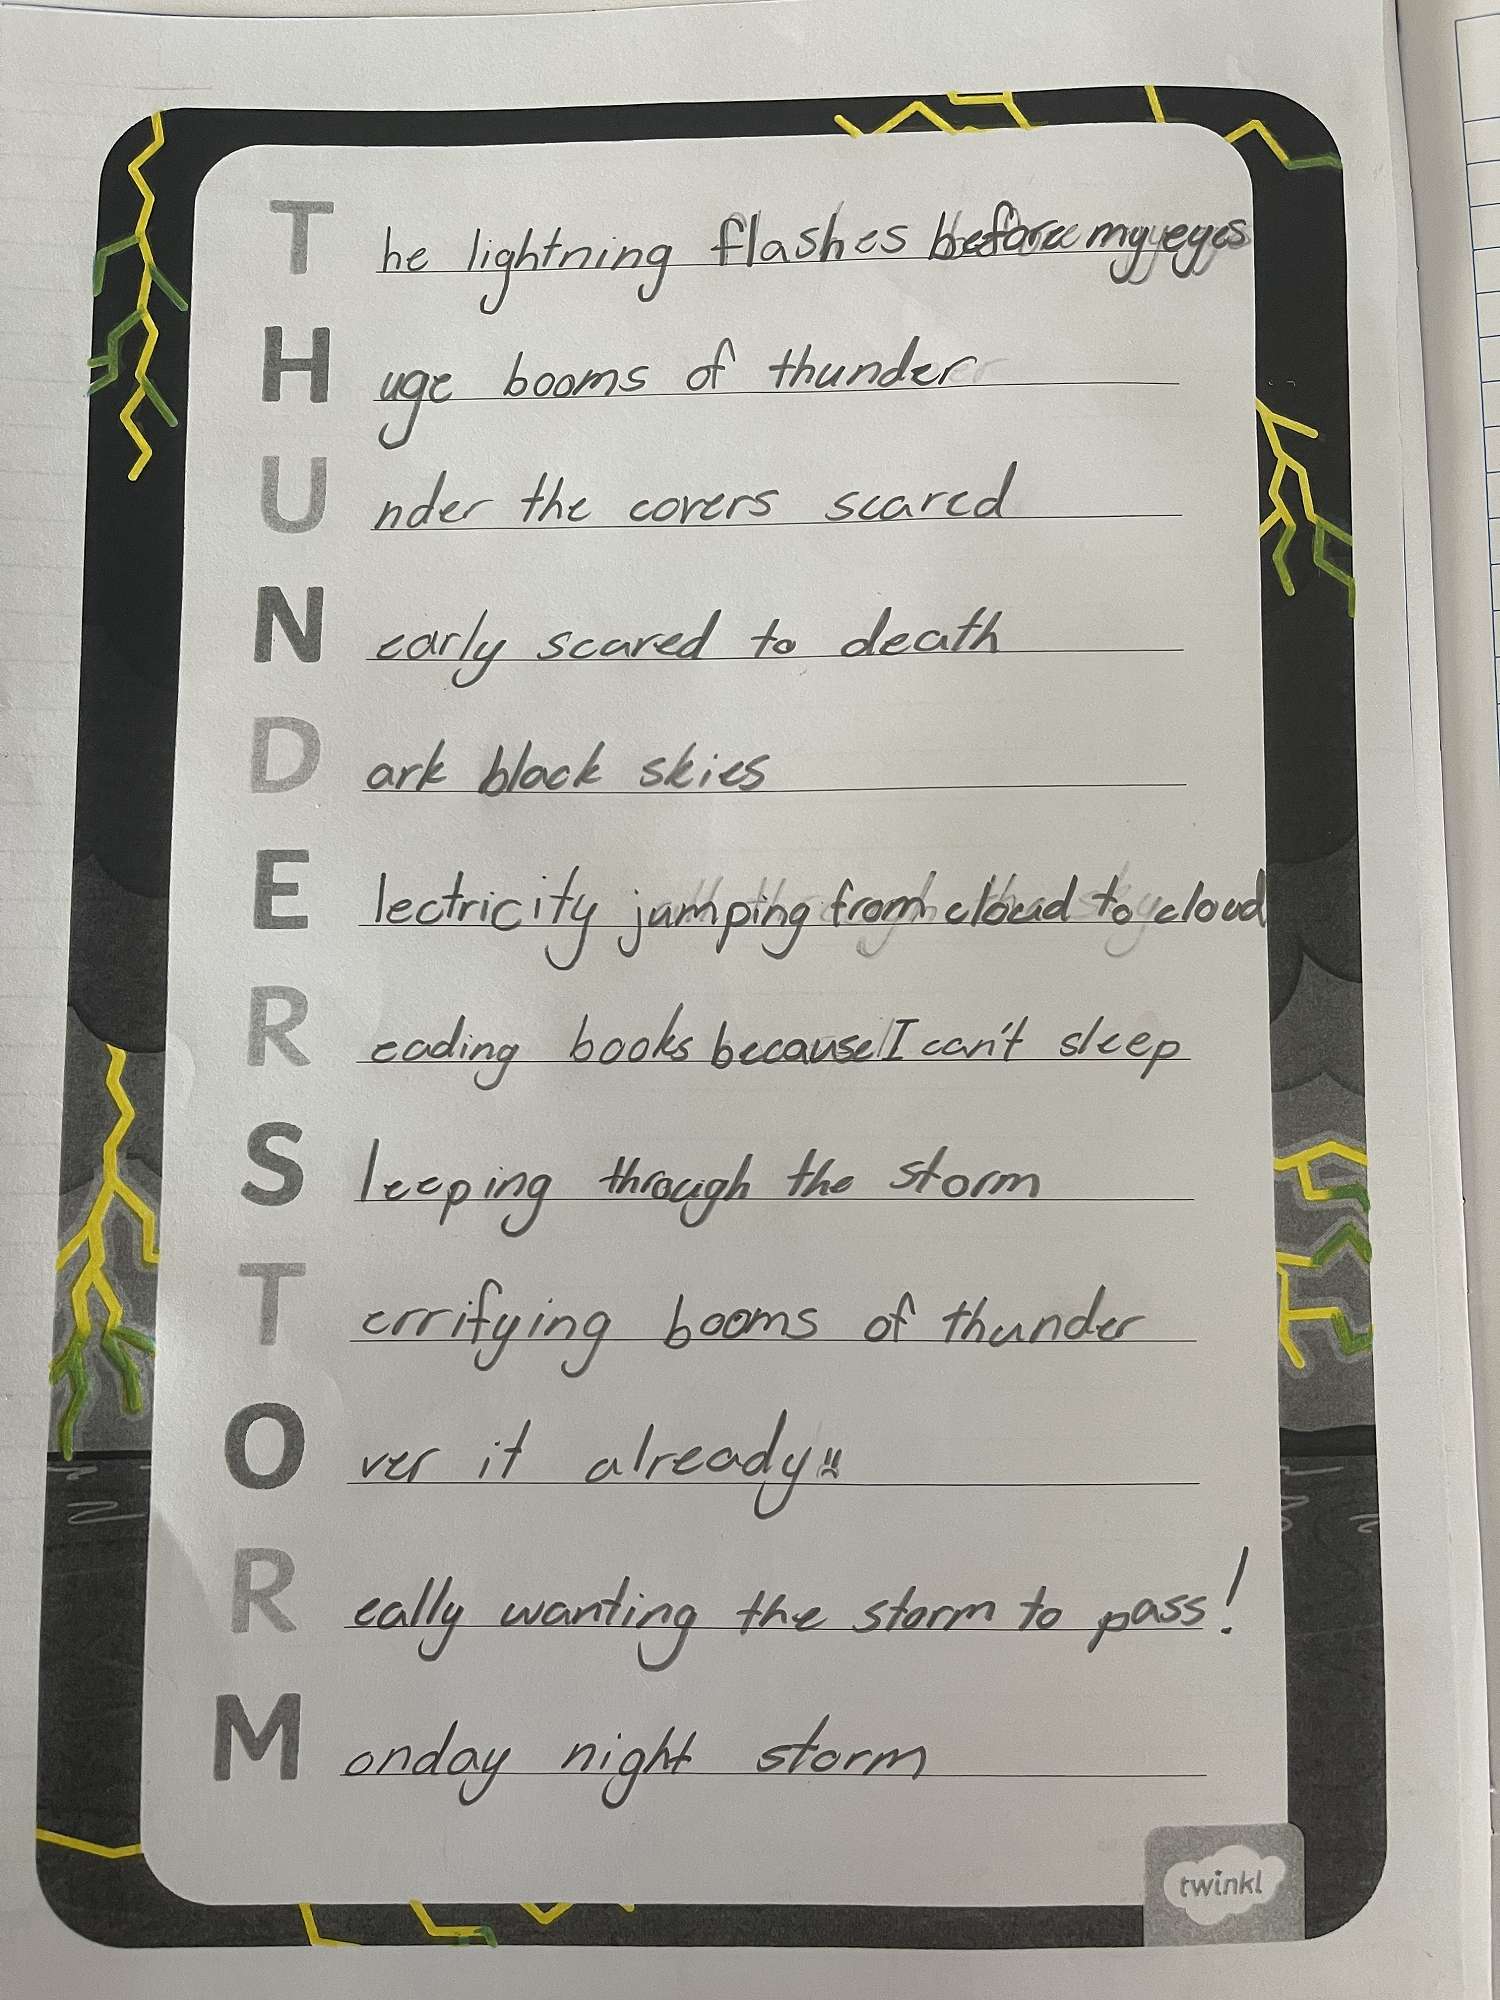 The lightning flashes before my eyes
Huge booms of thunder
Under the covers scared
Nearly scared to death
Dark black skies
Electricity jumping from cloud to cloud
Reading books because I can't sleep
Sleeping through the storm
Terrifying booms of thunder
Over it already!!
Really wanting the storm to pass!
Monday night storm
twinkl